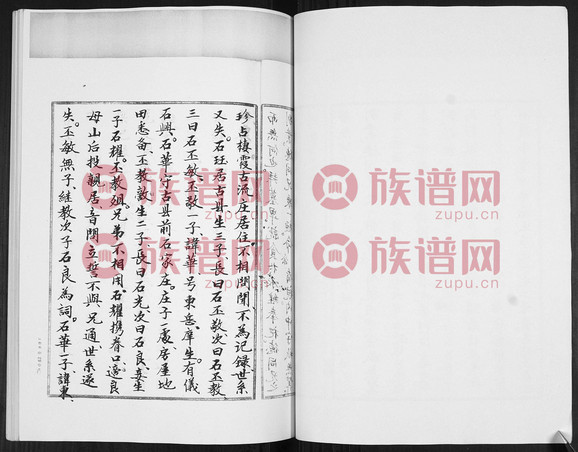 珍占棲霞古流庄居住不相聞聞不為記錄世系
又失石玨居古县生三子長曰石丕敬次曰石丕教
三曰石丕敏丕敬一子諱華号東岳庠生有儀
石典石華守古县前石家庄庄子一處房屋地
田悉备丕教敦生二子長曰石光次曰石良妾生
一子石耀丕教俎兄弟不相用石耀携眷口遼良
母山后投親居音聞立誓不與兄通世系遂
失丕敏無子継教次子石良為詞石華一子諱東
族谱网
zupu.cn
族谱网
zupu.cn
族谱网
zupu.cn
族谱网
zupu.cn